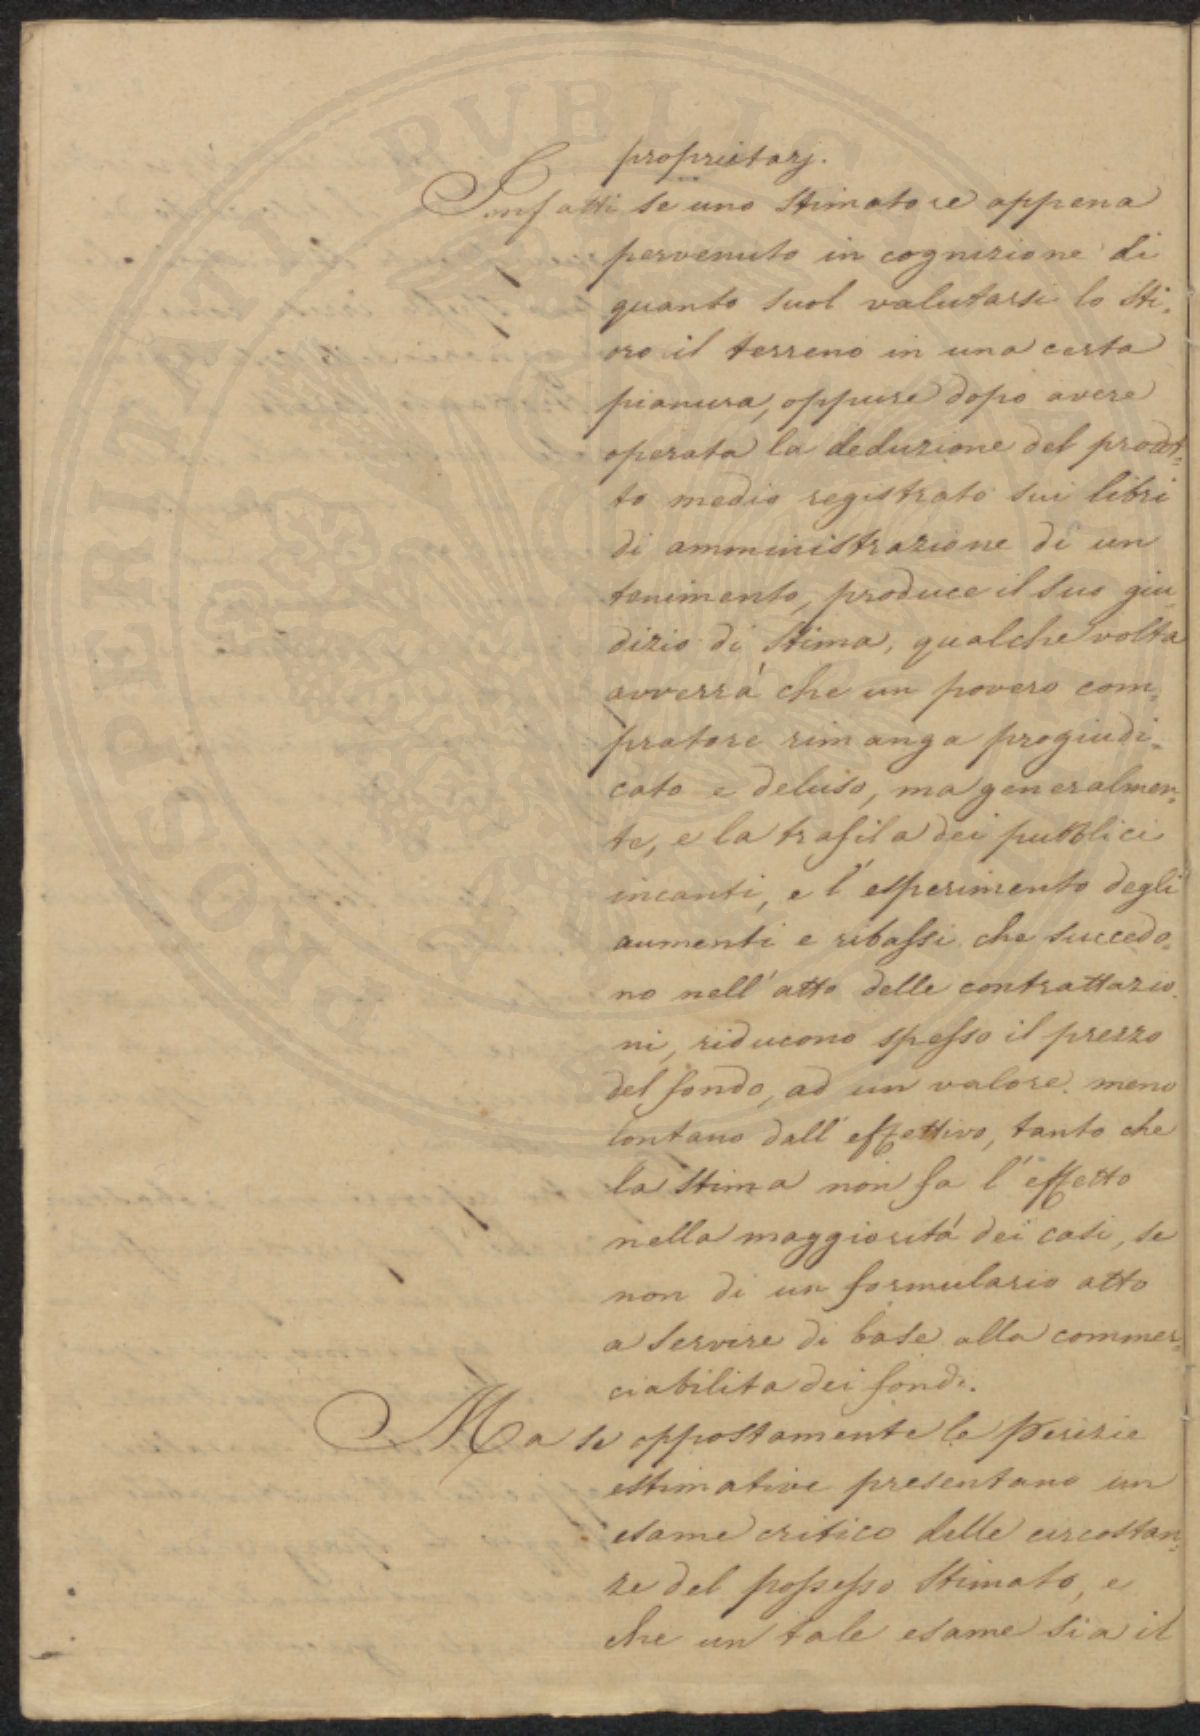 proprietarj.
Infatti se uno stimatore appena
pervenuto in cognizione di
quanto suol valutarsi lo sti-
oro il terreno in una certa
pianura, oppure dopo avere
operata la deduzione del prodot-
to medio registrato sui libri
di amministrazione di un
tenimento, produce il suo giu
dizio di stima, qualche volta
avverrà che un povero com-
pratore rimanga progiudi-
cato e deluso, ma generalmen-
te, e la trafila dei pubblici
incanti, e l'esperimento degli
aumenti e ribassi che succedo-
no nell'atto delle contrattazio-
ni, riducono spesso il prezzo
del fondo, ad un valore meno
lontano dall'effettivo, tanto che
la stima non fa l'effetto
nella maggiorità dei casi, se
non di un formulario atto
a servire di base alla commer-
ciabilita dei fondi.
Ma se oppostamente le Perizie
estimative presentano un
esame critico delle circostan-
ze del possesso stimato, e
che un tale esame sia il
PROSPERITATI PVBLICAE